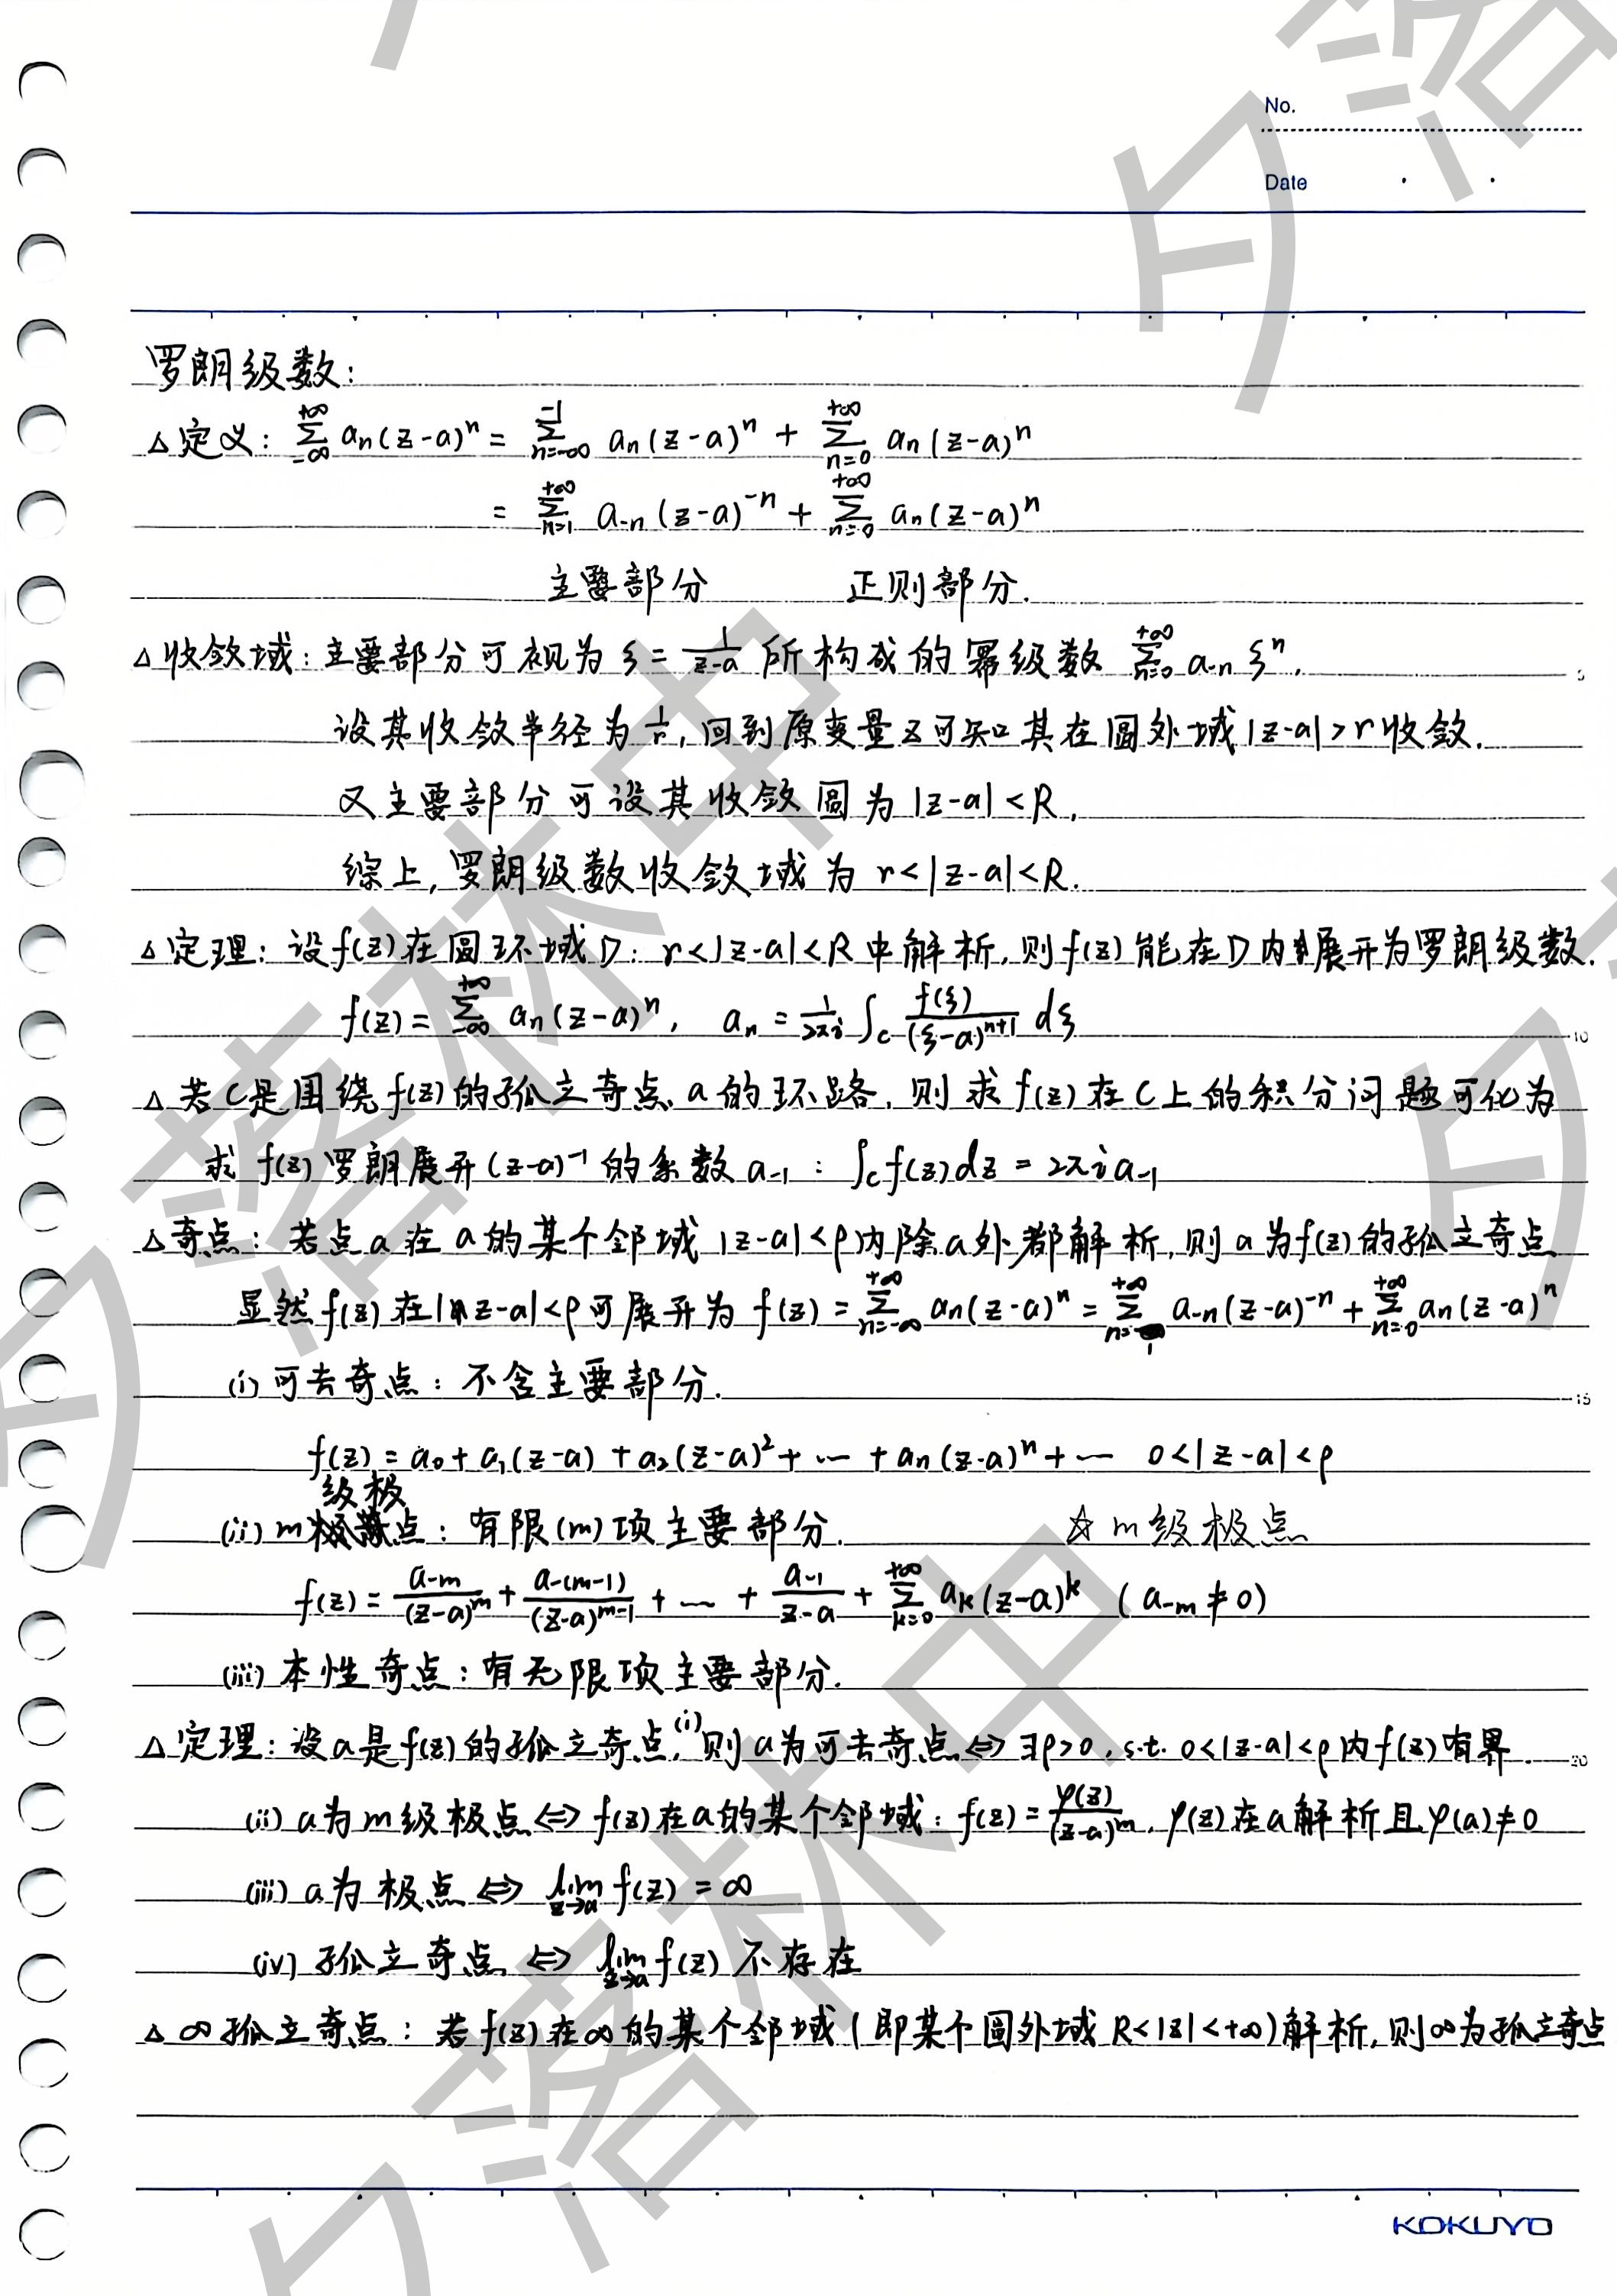 No.
Date
罗朗级数:
△定义: $\sum_{-\infty}^{+\infty} a_n(z-a)^n = \sum_{n=-\infty}^{-1} a_n(z-a)^n + \sum_{n=0}^{+\infty} a_n(z-a)^n$
$= \sum_{n=1}^{+\infty} a_{-n}(z-a)^{-n} + \sum_{n=0}^{+\infty} a_n(z-a)^n$
主要部分 正则部分.
△收敛域: 主要部分可视为 $\xi = \frac{1}{z-a}$ 所构成的幂级数 $\sum_{n=0}^{+\infty} a_{-n}\xi^n$.
设其收敛半径为 $\frac{1}{r}$, 回到原变量z可知其在圆外域 |z-a|>r 收敛.
又主要部分可设其收敛圆为 |z-a|<R,
综上, 罗朗级数收敛域为 r<|z-a|<R.
△定理: 设f(z)在圆环域D: r<|z-a|<R中解析, 则f(z)能在D内展开为罗朗级数.
$f(z) = \sum_{-\infty}^{+\infty} a_n(z-a)^n, \quad a_n = \frac{1}{2\pi i}\int_C \frac{f(\xi)}{(\xi-a)^{n+1}}d\xi$
10
△ 若C是围绕f(z)的孤立奇点a的环路, 则求f(z)在C上的积分问题可化为
求f(z)罗朗展开$(z-a)^{-1}$的系数$a_{-1}$: $\int_C f(z)dz = 2\pi i a_{-1}$
△奇点: 若点a在a的某个邻域 |z-a|<ρ内除a外都解析, 则a为f(z)的孤立奇点
显然f(z)在|z-a|<ρ可展开为 $f(z) = \sum_{n=-\infty}^{+\infty} a_n(z-a)^n = \sum_{n=1}^{+\infty} a_{-n}(z-a)^{-n} + \sum_{n=0}^{+\infty} a_n(z-a)^n$
(i) 可去奇点: 不含主要部分.
15
$f(z) = a_0 + a_1(z-a) + a_2(z-a)^2 + \cdots + a_n(z-a)^n + \cdots \quad 0<|z-a|<ρ$
(ii) m级极点: 有限(m)项主要部分. ☆ m级极点
$f(z) = \frac{a_{-m}}{(z-a)^m} + \frac{a_{-(m-1)}}{(z-a)^{m-1}} + \cdots + \frac{a_{-1}}{z-a} + \sum_{k=0}^{+\infty} a_k(z-a)^k \quad (a_{-m} \neq 0)$
(iii) 本性奇点: 有无限项主要部分.
△定理: 设a是f(z)的孤立奇点, (i)则a为可去奇点⇔∃ρ>0, s.t. 0<|z-a|<ρ内f(z)有界.
20
(ii) a为m级极点⇔f(z)在a的某个邻域: $f(z) = \frac{\varphi(z)}{(z-a)^m}$, φ(z)在a解析且φ(a)≠0
(iii) a为极点 ⇔ $\lim_{z\to a} f(z) = \infty$
(iv) 孤立奇点 ⇔ $\lim_{z\to a} f(z)$ 不存在
△ ∞孤立奇点: 若f(z)在∞的某个邻域(即某个圆外域 R<|z|<+∞)解析, 则∞为孤立奇点
KOKUYO
夕落林中